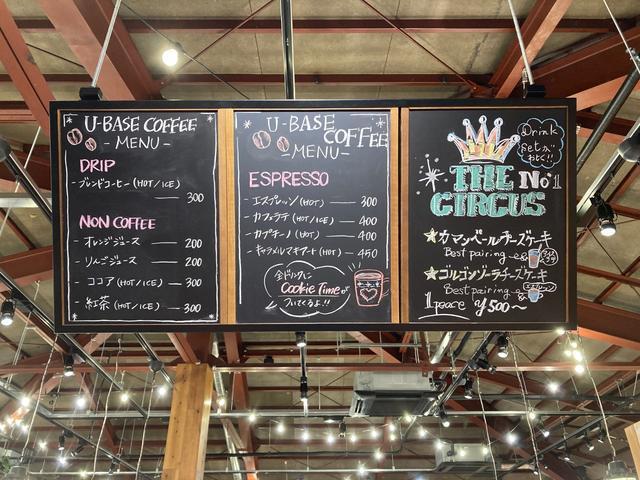 U-BASE COFFEE
- MENU -
DRIP
- ブレンドコーヒー (HOT/ICE)
300
NON COFFEE
- オレンジジュース — 200
- りんごジュース — 200
- ココア (HOT/ICE) — 300
- 紅茶 (HOT/ICE) — 300
U-BASE
COFFEE
- MENU -
ESPRESSO
- エスプレッソ (HOT) — 300
- カフェラテ (HOT/ICE) — 400
- カプチーノ (HOT) — 400
- キャラメルマキアート (HOT) — 450
全ドリンクに
Cookie Time が
ついてくるよ!!
Drink
Setが
おとく!!
THE No.1
CIRCUS
カマンベールチーズケーキ
Best pairing
ゴルゴンゾーラチーズケーキ
Best pairing
1peace ¥500〜